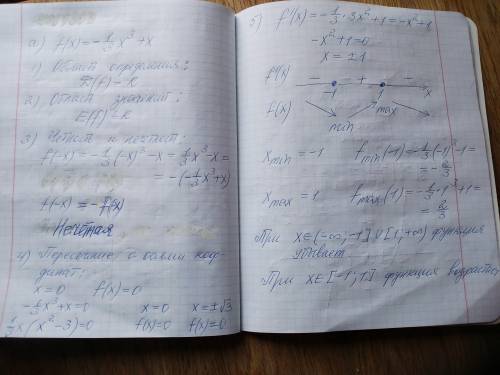 а) f(x)=-1/3 x³+x
1) Область определения:
D(f)-R
2) Область значений:
E(f)-R
3) Четност и нечтност:
f(-x)=-1/3(-x)³-x=1/3x³-x=
=-(-1/3x³+x)
f(-x)=-f(x)
Нечётная
4) Пересечение с осями коор
динат:
x=0 f(x)=0
-1/3x³+x=0 x=0 x=±√3
1/3x(x²-3)=0 f(x)=0 f(x)=0
5) f'(x)=-1/3·3x²+1=-x²+1
-x²+1=0
x=±1
f'(x) - + -
-1 1 x
f(x) max
min
x min=-1 f min(-1)=-1/3(-1)³-1=
=-2/3
x max=1 f max(1)=-1/3·1³+1=
=2/3
При x∈(-∞;-1]∪[1;+∞) функция
убывает
При x∈[-1;1] функция возрастает